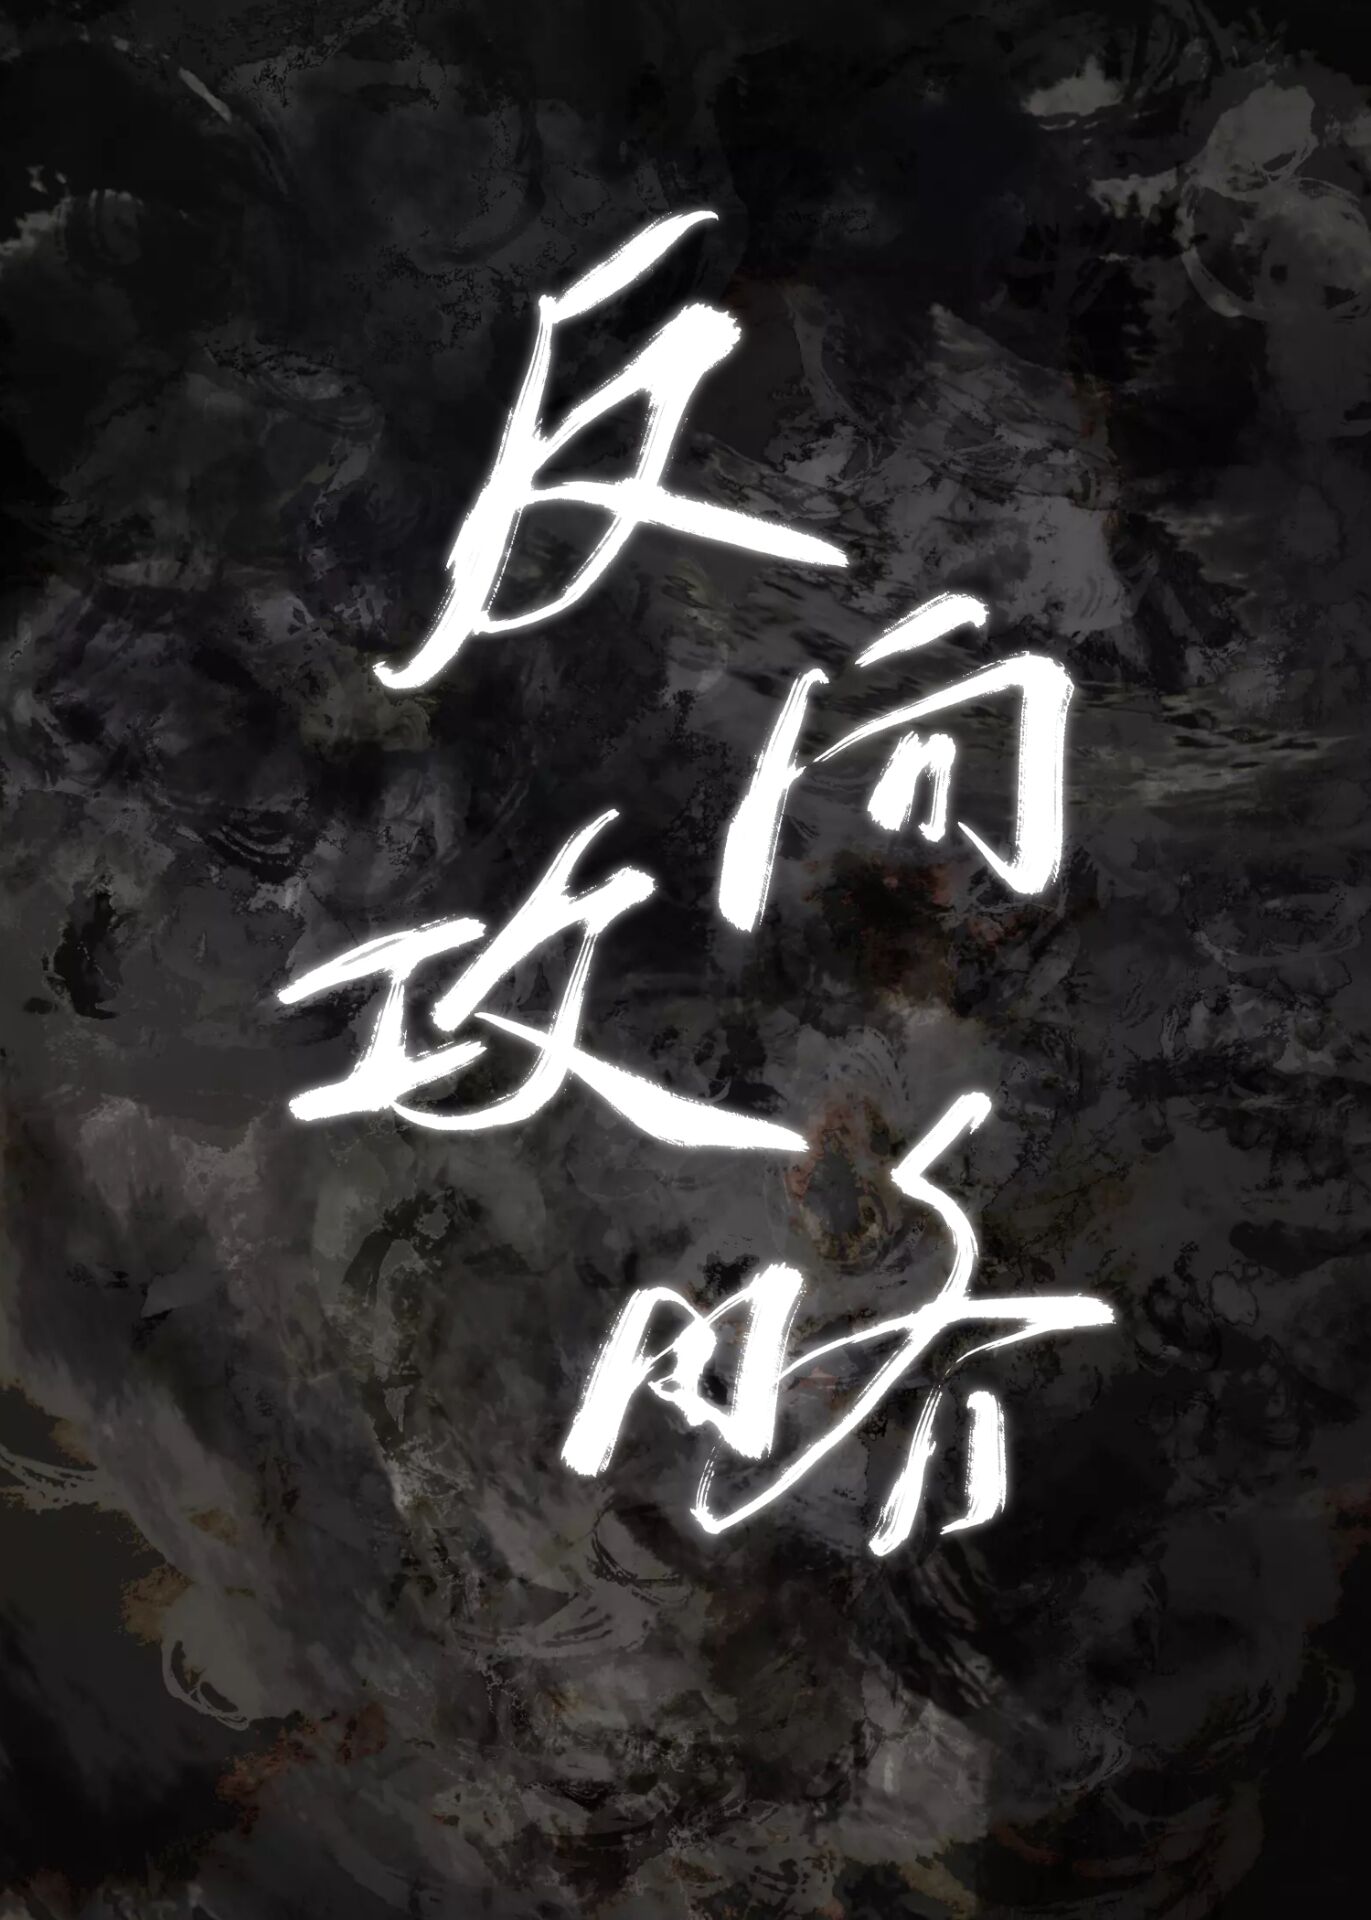 反向攻略